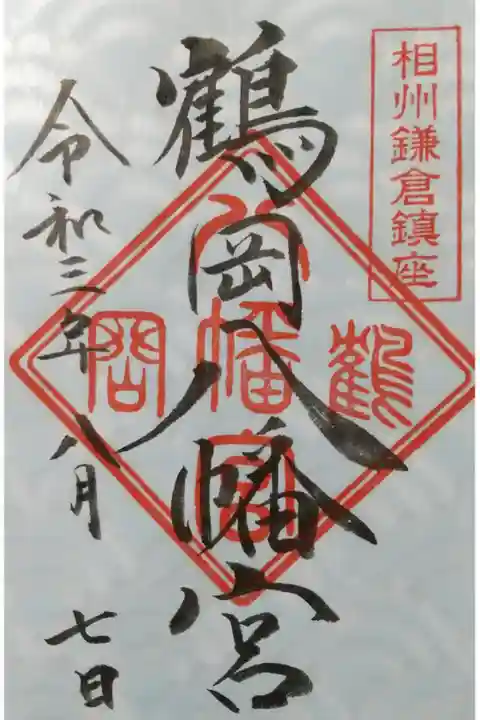 相州鎌倉鎮座
鶴岡八幡宮
鶴
八幡宮
岡
令和三年八月七日